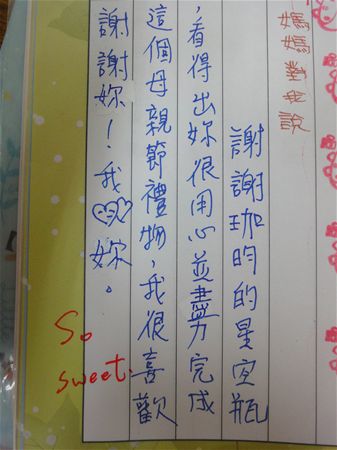 媽媽對我說
謝謝珈昀的星空瓶
,看得出妳很用心並盡力完成
這個母親節禮物,我很喜歡
謝謝妳!我妳。
So
sweet.